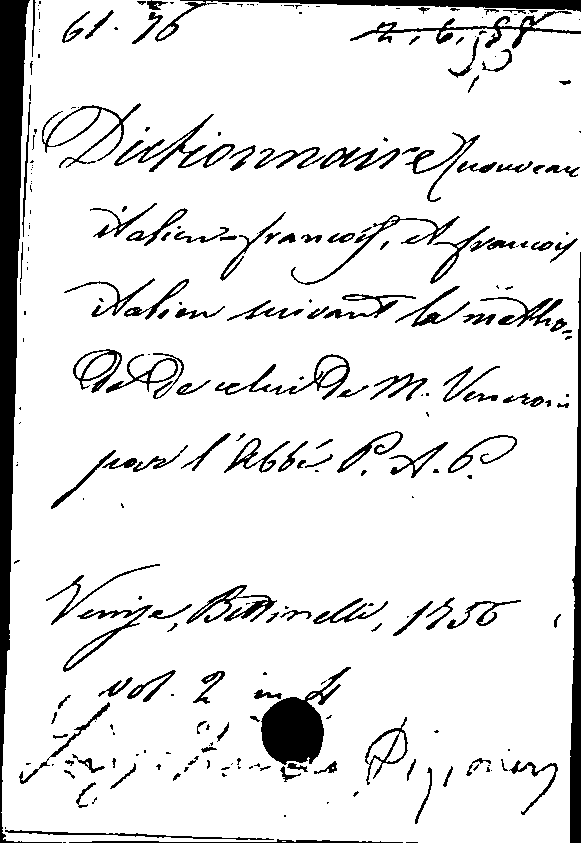 61. 76 2. 6. 58
Dictionnaire (nouveau
italien-françois, et françois
italien suivant la métho-
de de celui de M. Veneroni
par l'Abbé P. A. P.
Venise, Bettinelli, 1756
vol. 2 in 4